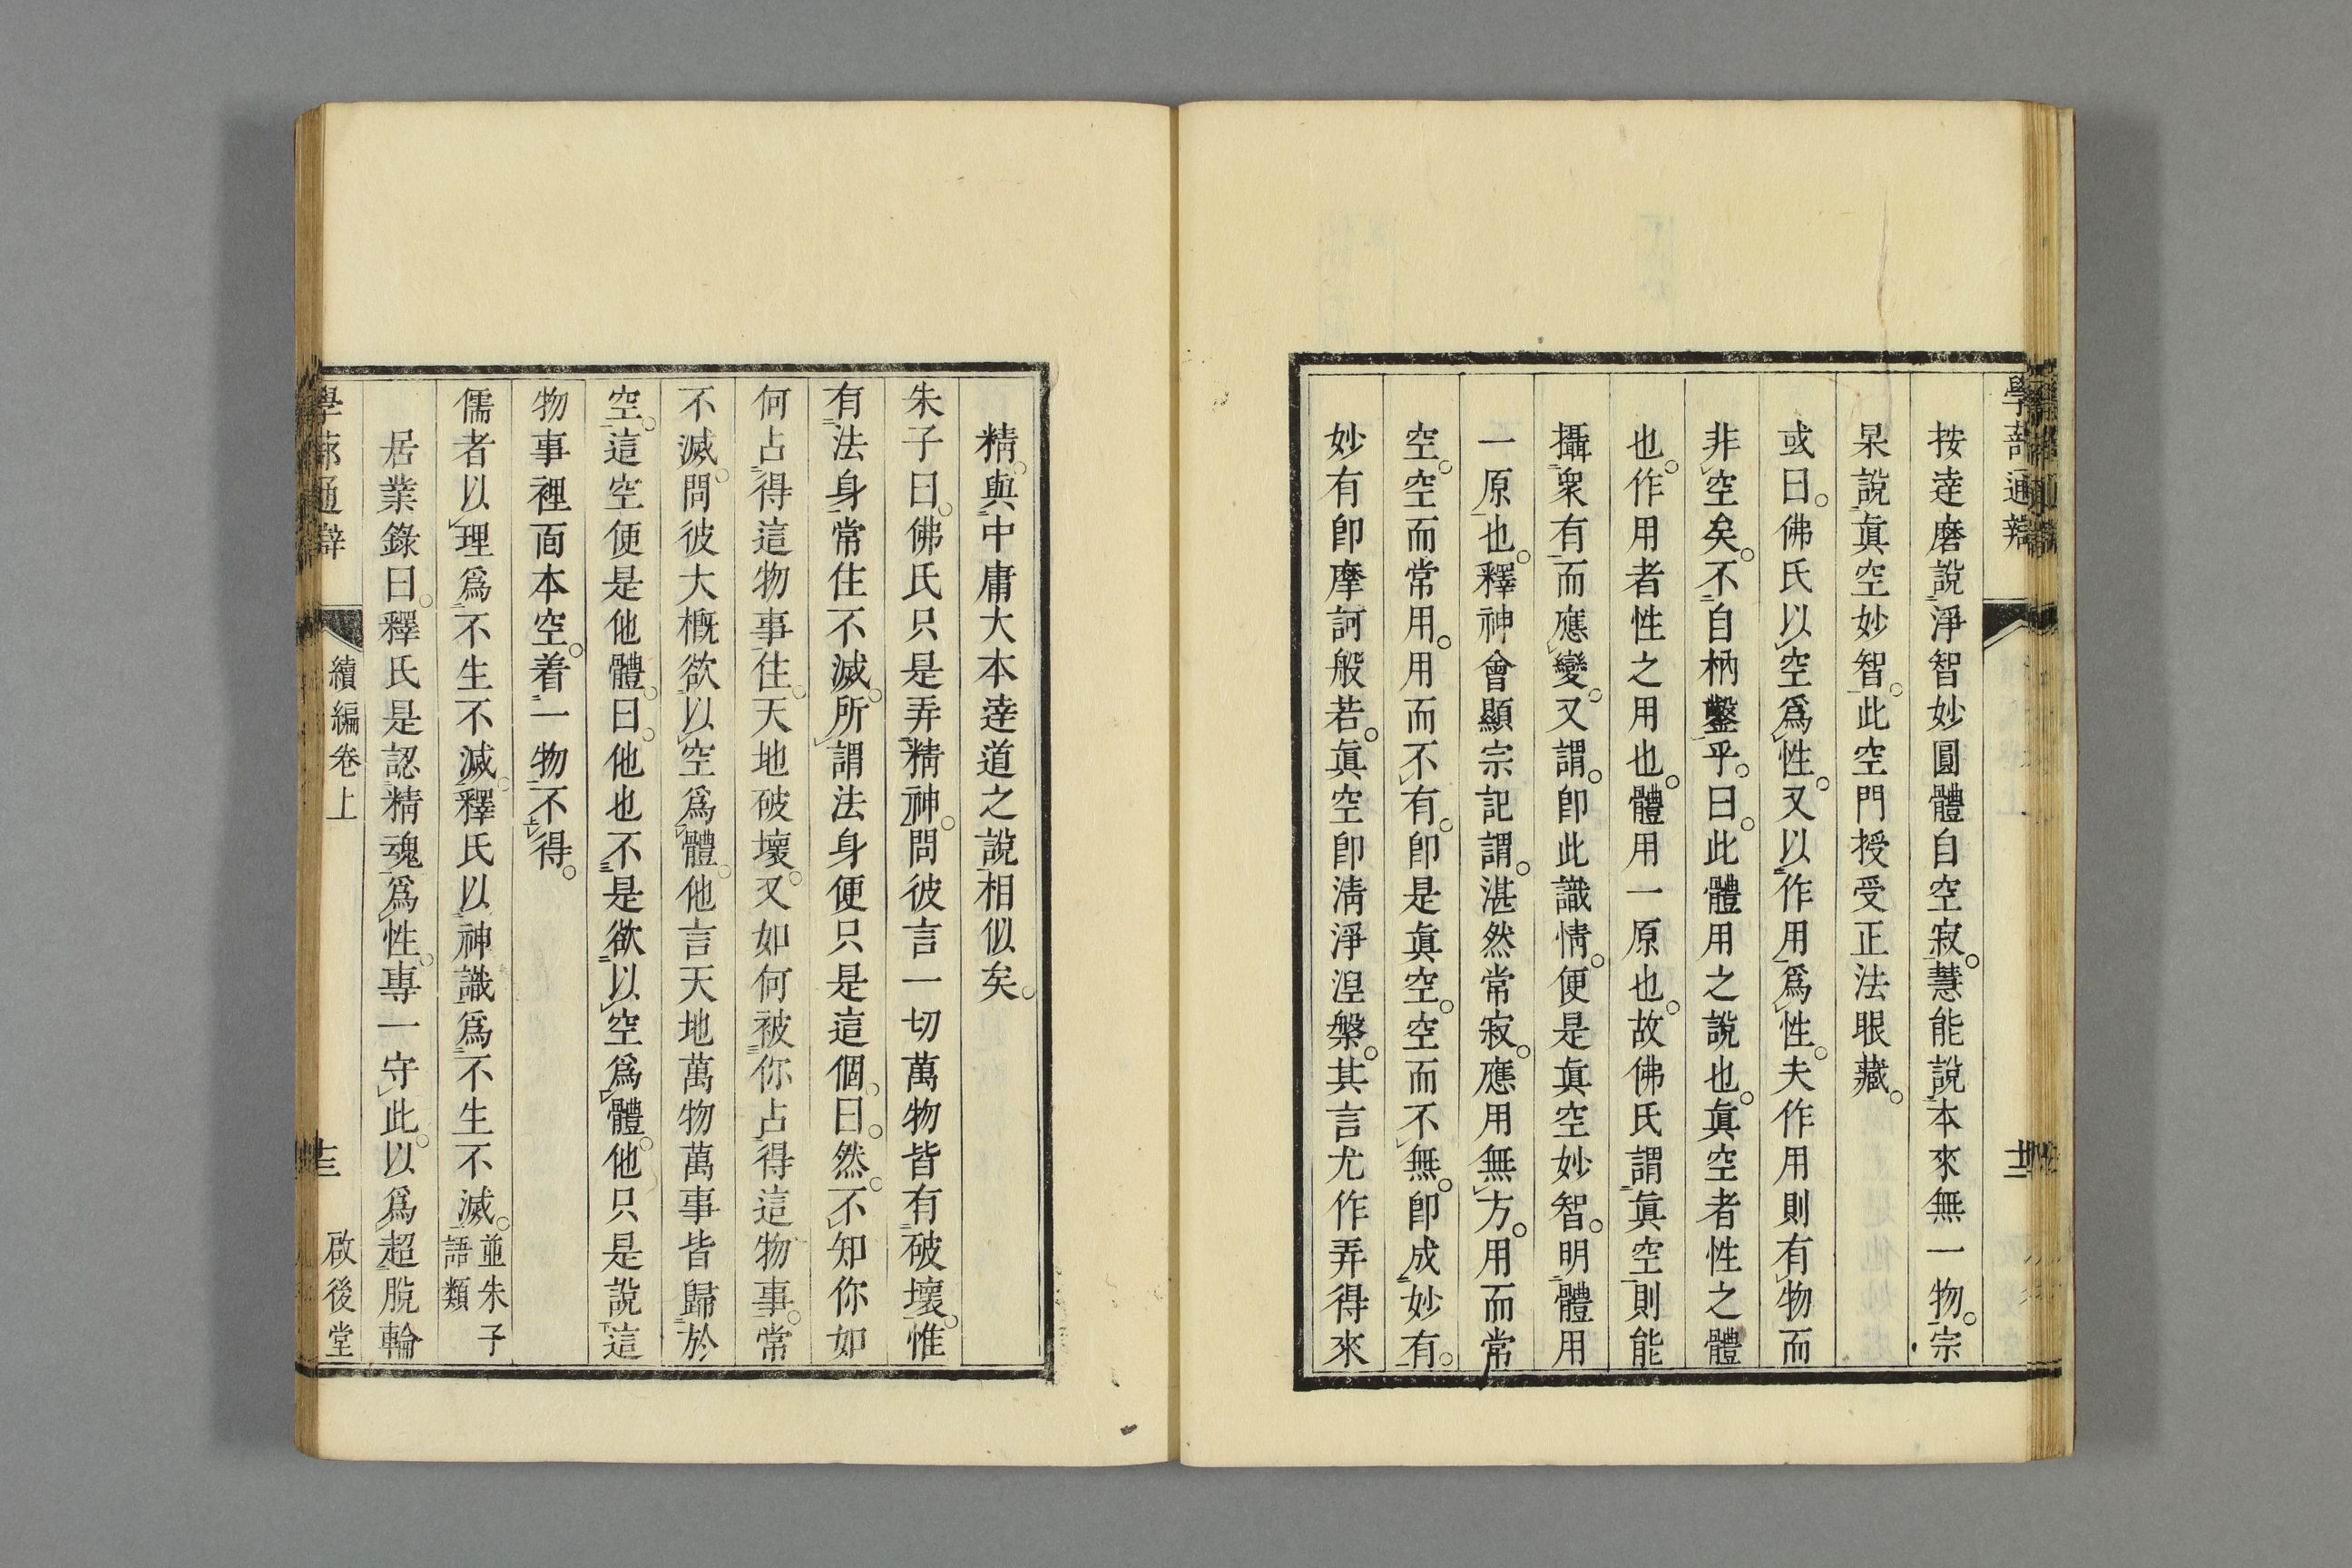 學蔀通辯
十二
按達磨說淨智妙圓體自空寂。慧能說本來無一物。宗
杲說眞空妙智。此空門授受正法眼藏。
或曰。佛氏以空爲性。又以作用爲性。夫作用則有物而
非空矣。不自枘鑿乎。曰。此體用之說也。眞空者性之體
也。作用者性之用也。體用一原也。故佛氏謂眞空則能
攝衆有而應變。又謂。卽此識情。便是眞空妙智。明體用
一原也。釋神會顯宗記謂。湛然常寂。應用無方。用而常
空。空而常用。用而不有。卽是眞空。空而不無。卽成妙有。
妙有卽摩訶般若。眞空卽淸淨涅槃。其言尤作弄得來
精。與中庸大本達道之說相似矣。
朱子曰。佛氏只是弄精神。問彼言一切萬物皆有破壞。惟
有法身常住不滅。所謂法身便只是這個。曰。然。不知你如
何占得這物事住。天地破壞。又如何被你占得這物事。常
不滅。問彼大概欲以空爲體。他言天地萬物萬事皆歸於
空。這空便是他體。曰。他也不是欲以空爲體。他只是說這
物事裡面本空。着一物不得。
儒者以理爲不生不滅。釋氏以神識爲不生不滅。並朱子語類
居業錄曰。釋氏是認精魂爲性。專一守此。以爲超脫輪
學蔀通辯
續編卷上
十三
啟後堂